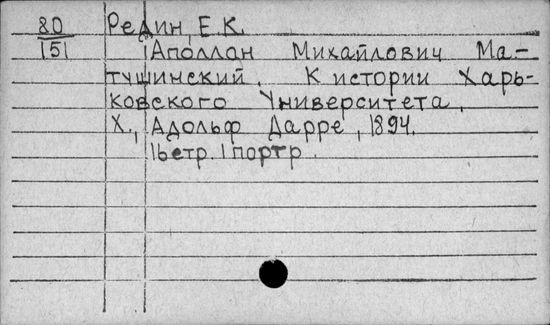 80 Редин, Е.К.
151 Аполлон Михайлович Ма-
тушинский. К истории Харь-
ковского Университета.
Х., Адольф Дарре, 1894.
16стр. 1 портр.